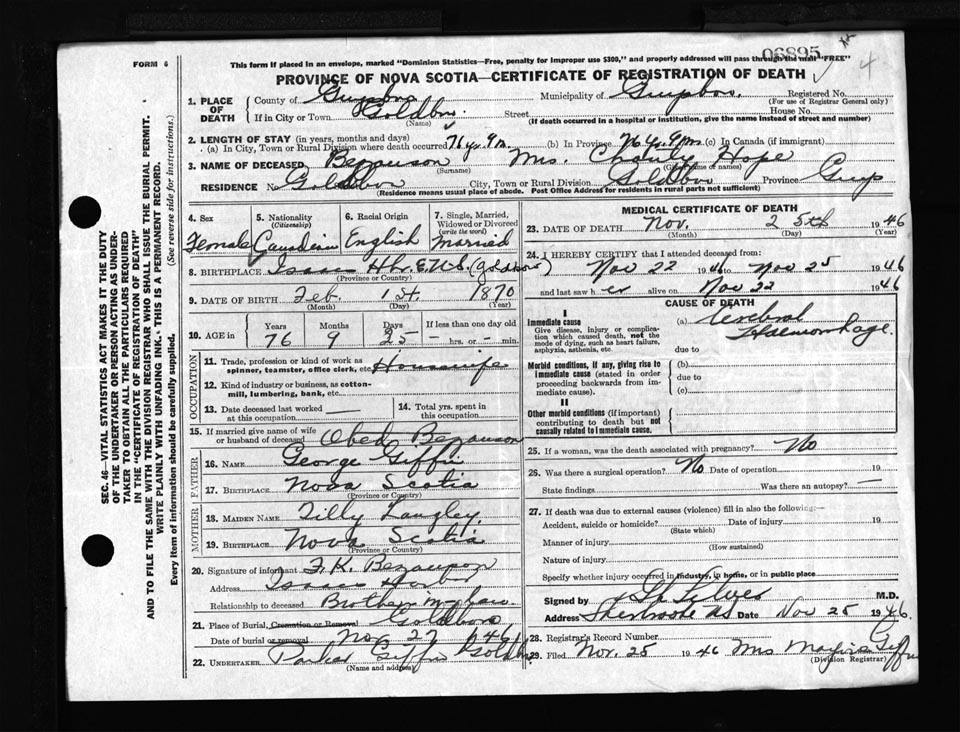 06895
4
FORM 6
This form if placed in an envelope, marked "Dominion Statistics—Free, penalty for improper use $300," and properly addressed will pass through the mail "FREE"
PROVINCE OF NOVA SCOTIA—CERTIFICATE OF REGISTRATION OF DEATH
1. PLACE OF DEATH
County of Guysboro Municipality of Guysboro. Registered No.
(For use of Registrar General only)
If in City or Town Goldboro. Street House No.
(Name) (If death occurred in a hospital or institution, give the name instead of street and number)
2. LENGTH OF STAY (in years, months and days)
(a) In City, Town or Rural Division where death occurred 76 yr. 9 m. (b) In Province 76 Yr. 9 m. (c) In Canada (if immigrant)
3. NAME OF DECEASED Bezanson Mrs. Charity Hope
(Surname) (Given name or names)
RESIDENCE No Goldboro City, Town or Rural Division Goldboro Province Guys
(Residence means usual place of abode. Post Office Address for residents in rural parts not sufficient)
4. Sex
Female
5. Nationality (Citizenship)
Canadian
6. Racial Origin
English
7. Single, Married, Widowed or Divorced (write the word)
Married
8. BIRTHPLACE Isaac Hbr. E. N.S. (Goldboro)
(Province or Country)
9. DATE OF BIRTH Feb. 1st. 1870
(Month) (Day) (Year)
10. AGE in
Years Months Days If less than one day old
76 9 25 — hrs. or — min.
OCCUPATION
11. Trade, profession or kind of work as spinner, teamster, office clerk, etc. Housewife
12. Kind of industry or business, as cotton-mill, lumbering, bank, etc.
13. Date deceased last worked at this occupation
14. Total yrs. spent in this occupation
15. If married give name of wife or husband of deceased Obed Bezanson
FATHER
16. NAME George Giffin
17. BIRTHPLACE Nova Scotia
(Province or Country)
MOTHER
18. MAIDEN NAME Tilly Langley
19. BIRTHPLACE Nova Scotia
(Province or Country)
20. Signature of informant F. K. Bezanson
Address Isaac Harbor
Relationship to deceased Brother in law.
21. Place of Burial, Cremation or Removal Goldboro
Date of burial or removal Nov 27 1946
22. UNDERTAKER Parker Giffin Goldboro
(Name and address)
MEDICAL CERTIFICATE OF DEATH
23. DATE OF DEATH Nov. 25th 1946
(Month) (Day) (Year)
24. I HEREBY CERTIFY that I attended deceased from:
Nov 22 1946 to Nov 25 1946
and last saw her alive on Nov 22 1946
CAUSE OF DEATH
I
Immediate cause
Give disease, injury or complication which caused death, not the mode of dying, such as heart failure, asphyxia, asthenia, etc.
(a) Cerebral Haemorrhage.
due to
Morbid conditions, if any, giving rise to immediate cause (stated in order proceeding backwards from immediate cause).
(b)
due to
(c)
II
Other morbid conditions (if important) contributing to death but not causally related to immediate cause.
25. If a woman, was the death associated with pregnancy? No
26. Was there a surgical operation? No Date of operation 19
State findings Was there an autopsy? —
27. If death due to external causes (violence) fill in also the following:—
Accident, suicide or homicide? Date of injury 19
(State which)
Manner of injury
(How sustained)
Nature of injury
Specify whether injury occurred in industry, in home, or in public place
Signed by M.D.
Address Sherbrooke NS Date Nov 25 1946
28. Registrar's Record Number
29. Filed Nov. 25 1946 Mrs Giffin
(Division Registrar)
SEC. 46—VITAL STATISTICS ACT MAKES IT THE DUTY
OF THE UNDERTAKER OR PERSON ACTING AS UNDER-
TAKER TO OBTAIN ALL THE PARTICULARS REQUIRED
IN THE "CERTIFICATE OF REGISTRATION OF DEATH"
AND TO FILE THE SAME WITH THE DIVISION REGISTRAR WHO SHALL ISSUE THE BURIAL PERMIT.
WRITE PLAINLY WITH UNFADING INK. THIS IS A PERMANENT RECORD.
Every item of information should be carefully supplied. (See reverse side for instructions.)